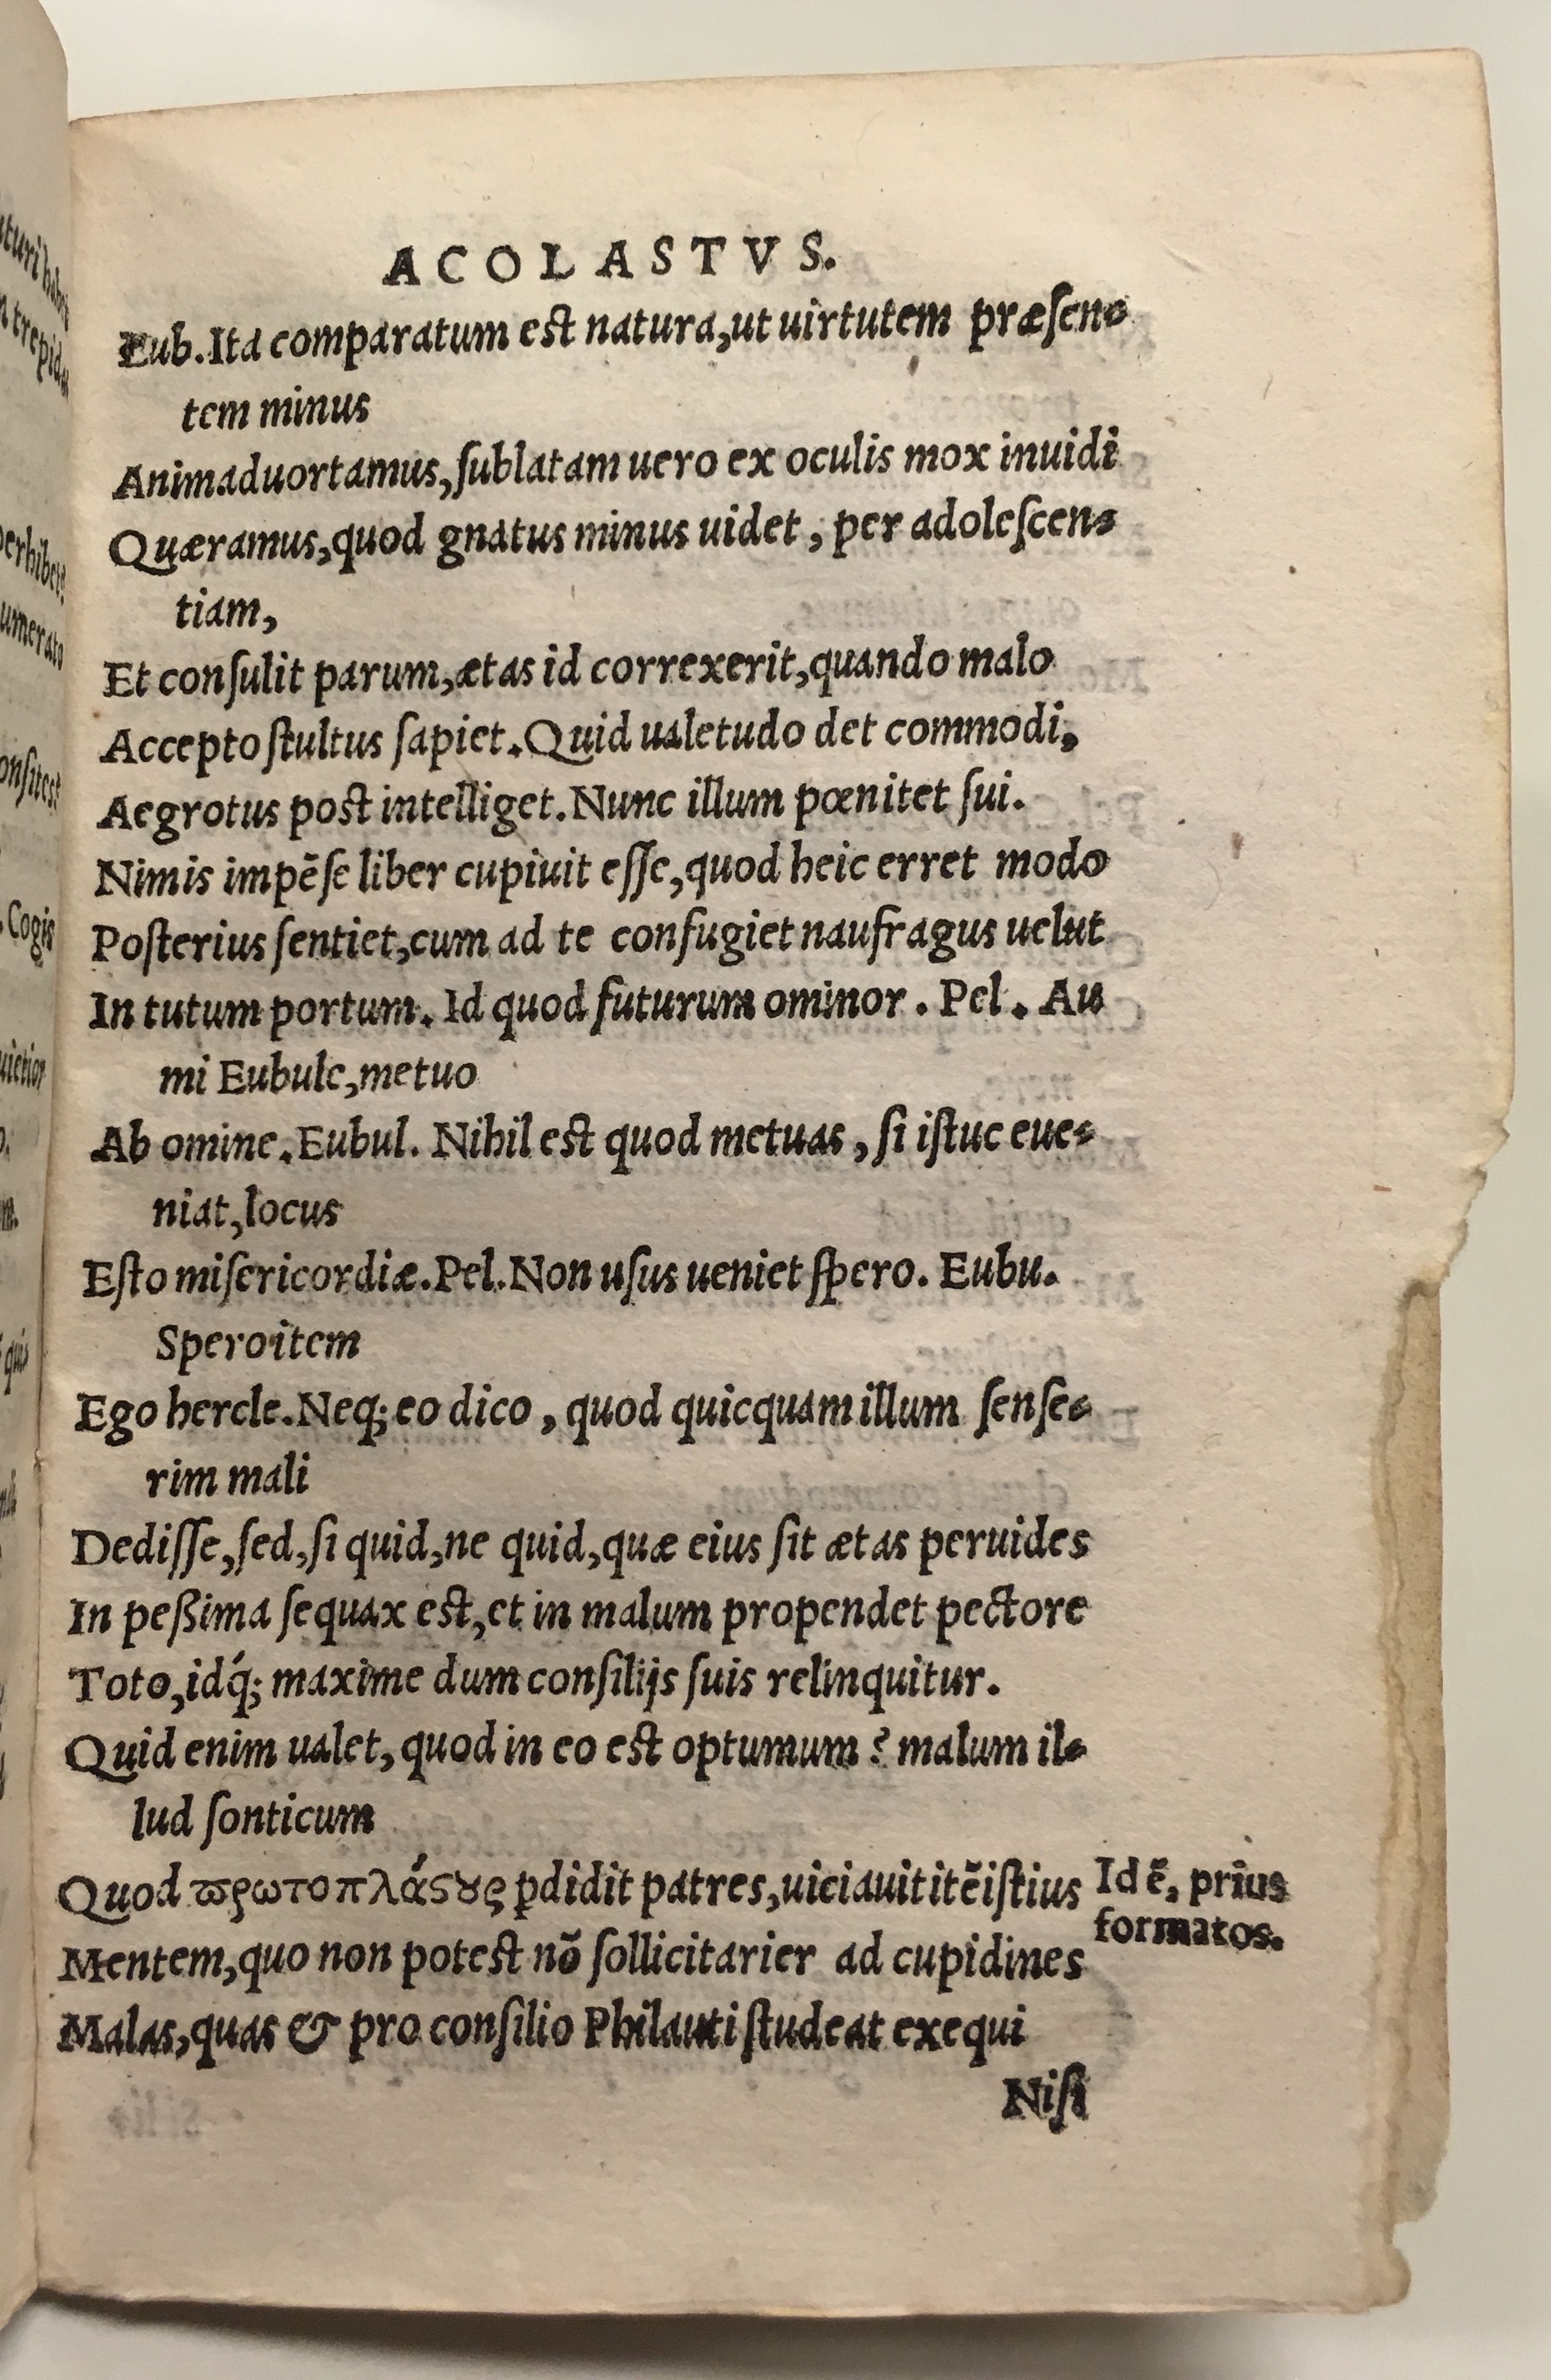 ACOLASTVS.
Eub. Ita comparatum est natura, ut uirtutem præsen-
tem minus
Animaduortamus, sublatam uero ex oculis mox inuidi
Quæramus, quod gnatus minus uidet, per adolescen-
tiam,
Et consulit parum, ætas id correxerit, quando malo
Accepto stultus sapiet. Quid ualetudo det commodi,
Aegrotus post intelliget. Nunc illum pœnitet sui.
Nimis impẽse liber cupiuit esse, quod heic erret modo
Posterius sentiet, cum ad te confugiet naufragus uelut
In tutum portum. Id quod futurum ominor. Pel. Au
mi Eubule, metuo
Ab omine. Eubul. Nihil est quod metuas, si istuc eue-
niat, locus
Esto misericordiæ. Pel. Non usus ueniet spero. Eubu.
Spero item
Ego hercle. Neq; eo dico, quod quicquam illum sense-
rim mali
Dedisse, sed, si quid, ne quid, quæ eius sit ætas peruides
In peßima sequax est, et in malum propendet pectore
Toto, idq́; maxime dum consilijs suis relinquitur.
Quid enim ualet, quod in eo est optumum? malum il-
lud sonticum
Quod ϖρωτοπλάϛȣς ꝑdidit patres, uiciauit itẽ istius
Id ẽ, prius
formatos.
Mentem, quo non potest nõ sollicitarier ad cupidines
Malas, quas & pro consilio Philauti studeat exequi
Nisi